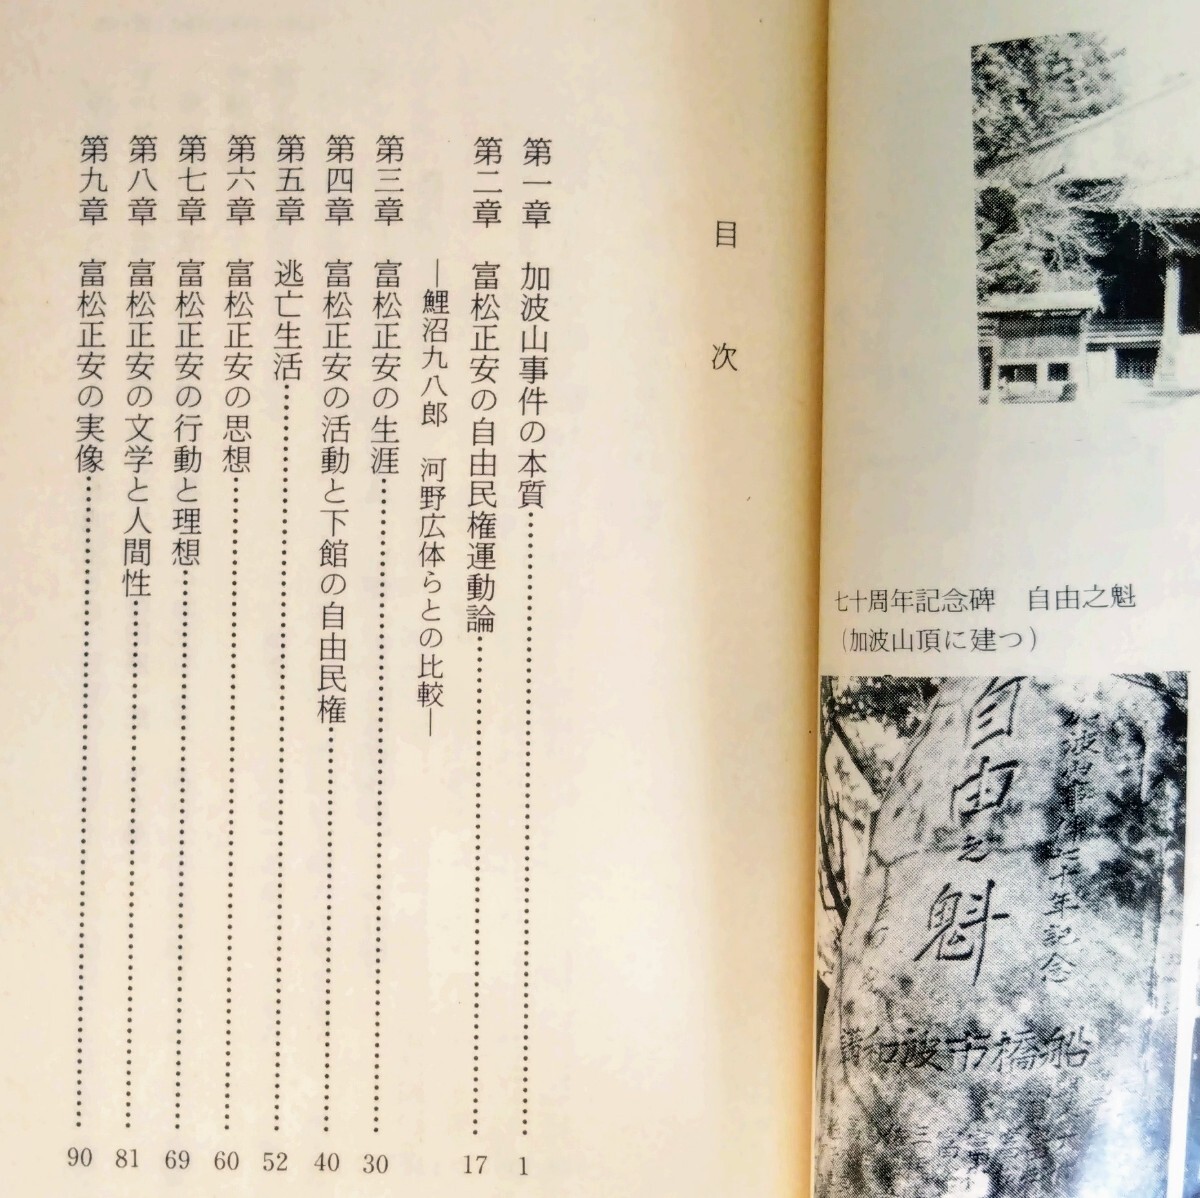 七十周年記念碑　自由之魁
(加波山頂に建つ)
自由之魁
波山事件七十年記念
船橋市
目次
第一章　加波山事件の本質……………………………1
第二章　富松正安の自由民権運動論……………………………17
―鯉沼九八郎　河野広体らとの比較―
第三章　富松正安の生涯……………………………30
第四章　富松正安の活動と下館の自由民権……………………………40
第五章　逃亡生活……………………………52
第六章　富松正安の思想……………………………60
第七章　富松正安の行動と理想……………………………69
第八章　富松正安の文学と人間性……………………………81
第九章　富松正安の実像……………………………90